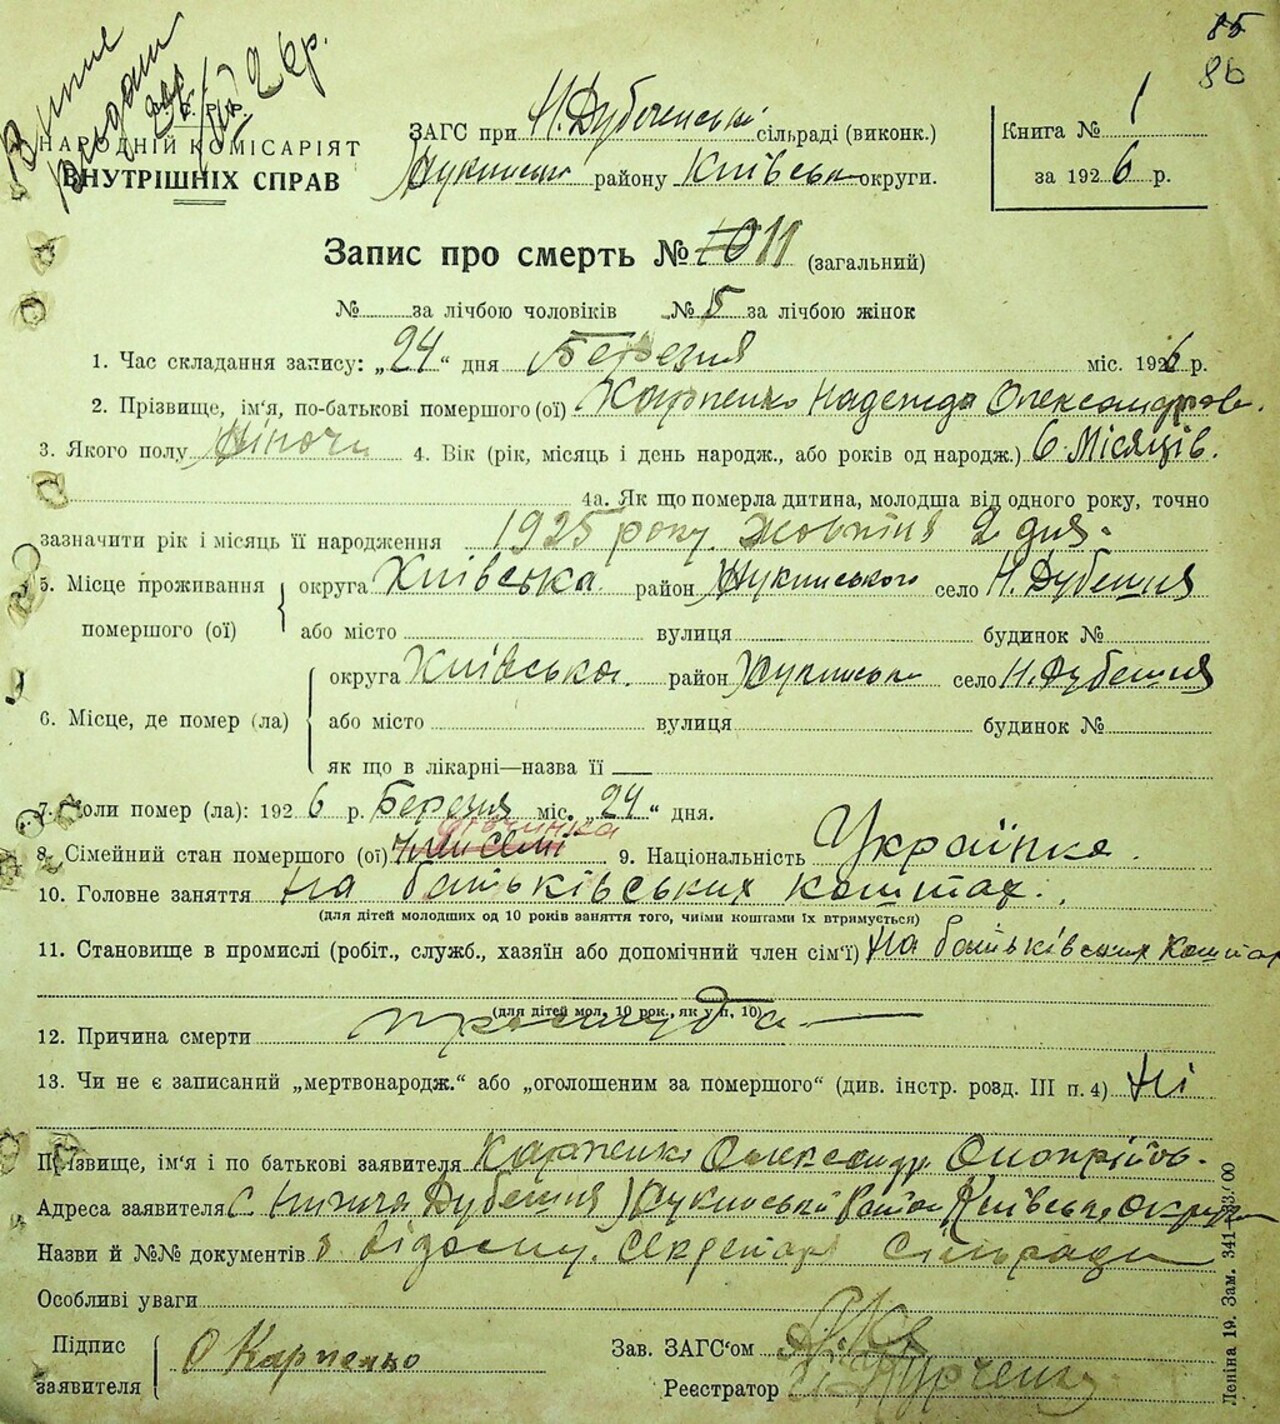 85
86
Витяг
видат
26р.
НАРОДНІЙ КОМІСАРІЯТ
ВНУТРІШНІХ СПРАВ
ЗАГС при Н.Дубеченські сільраді (виконк.)
Жукинські району Київськ округи.
Книга № 1
за 1926 р.
Запис про смерть № 10 11 (загальний)
№ за лічбою чоловіків № 5 за лічбою жінок
1. Час складання запису: „24“ дня Березня міс. 1926 р.
2. Прізвище, ім‘я, по-батькові помершого (ої) Карпенко Надежда Олександров.
3. Якого полу жіночи 4. Вік (рік, місяць і день народж., або років од народж.) 6 Місяців.
4а. Як що померла дитина, молодша від одного року, точно
зазначити рік і місяць її народження 1925 року Жовтня 2 дня.
5. Місце проживання помершого (ої) округа Київська район Жукинського село Н.Дубешня
або місто вулиця будинок №
6. Місце, де помер (ла) округа Київська. район Жукинськи село Н.Дубешня
або місто вулиця будинок №
як що в лікарні—назва її —
7. Коли помер (ла): 1926 р. Березня міс. „24“ дня.
дитинка
8. Сімейний стан помершого (ої) Член семі 9. Національність Українка.
10. Головне заняття На батьківських коштах.
(для дітей молодших од 10 років заняття того, чиїми коштами їх втримується)
11. Становище в промислі (робіт., служб., хазяїн або допомічний член сім‘ї) На батьківських коштах
(для дітей мол. 10 рок., як у п. 10)
12. Причина смерти простуда —
13. Чи не є записаний „мертвонародж.“ або „оголошеним за помершого“ (див. інстр. розд. III п. 4) Ні
Прізвище, ім‘я і по батькові заявителя Карпенко Олександр Онопрійов.
Адреса заявителя С. Нижча Дубешня Жукинський Район Київська округи
Назви й №№ документів з відому. Секретарі Сільради
Особливі уваги
Підпис заявителя О Карпенко
Зав. ЗАГС‘ом
Реєстратор
Леніна 19. Зам. 341